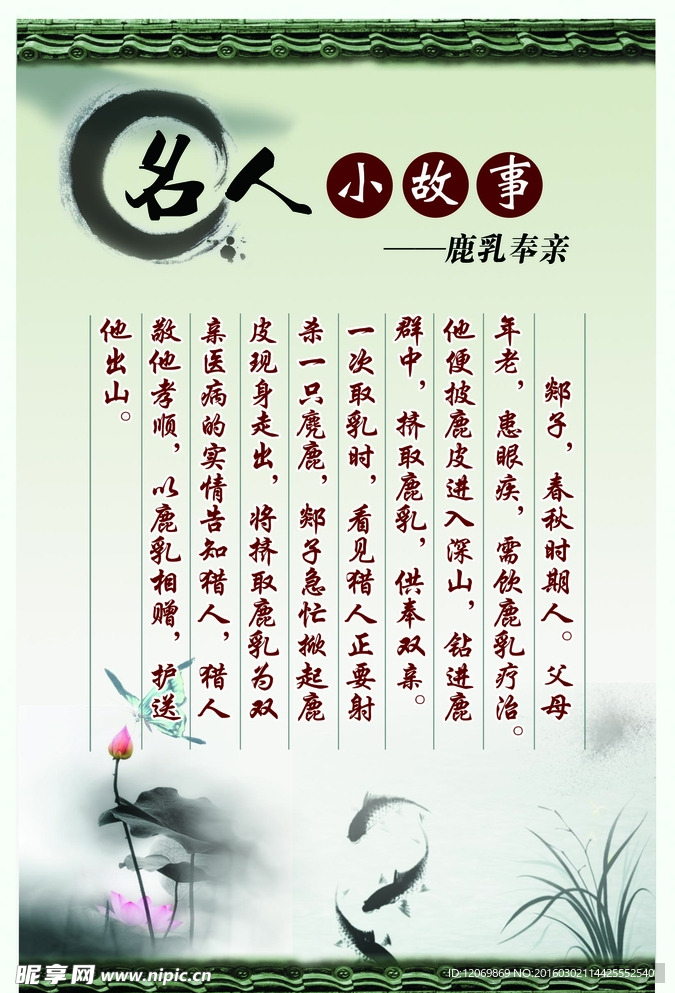 名人小故事
——鹿乳奉亲
郯子，春秋时期人。父母
年老，患眼疾，需饮鹿乳疗治。
他便披鹿皮进入深山，钻进鹿
群中，挤取鹿乳，供奉双亲。
一次取乳时，看见猎人正要射
杀一只麂鹿，郯子急忙掀起鹿
皮现身走出，将挤取鹿乳为双
亲医病的实情告知猎人，猎人
敬他孝顺，以鹿乳相赠，护送
他出山。
昵享网 www.nipic.cn
ID:12069869 NO:20160302114425552540